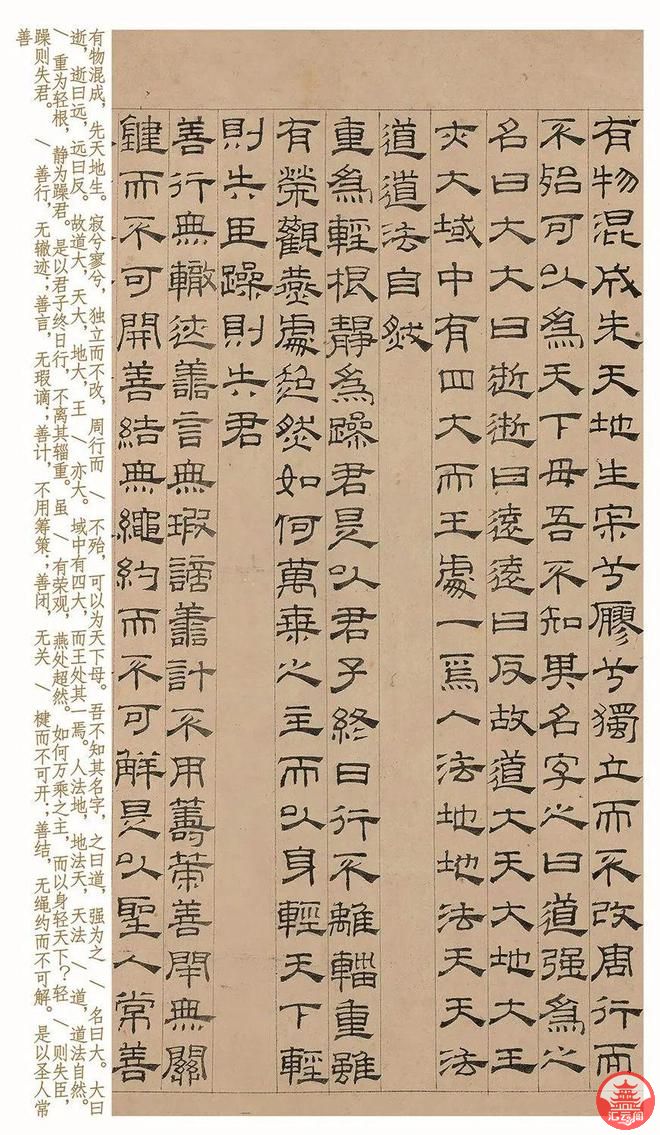 有物混成先天地生宗兮廫兮獨立而不改周行而
不殆可以為天下母吾不知其名字之曰道强為之
名曰大大曰逝逝曰遠遠曰反故道大天大地大王
亦大域中有四大而王處一焉人法地地法天天法
道道法自然
重為輕根靜為躁君是以君子終日行不離輜重雖
有榮觀燕處超然如何萬乘之主而以身輕天下輕
則失臣躁則失君
善行無轍迹善言無瑕謫善計不用籌策善閉無關
鍵而不可開善結無繩約而不可解是以聖人常善
有物混成，先天地生。寂兮寥兮，独立而不改，周行而 \ 不殆，可以为天下母。吾不知其名字，之曰道，强为之 \ 名曰大。大曰
逝，逝曰远，远曰反。故道大，天大，地大，王 \ 亦大。域中有四大，而王处其一焉。人法地，地法天，天法 \ 道，道法自然。
\ 重为轻根，静为躁君。是以君子终日行，不离其辎重。虽 \ 有荣观，燕处超然。如何万乘之主，而以身轻天下？轻 \ 则失臣，
躁则失君。 \ 善行，无辙迹；善言，无瑕谪；善计，不用筹策；善闭，无关 \ 楗而不可开；善结，无绳约而不可解。是以圣人常
善
汇云阁